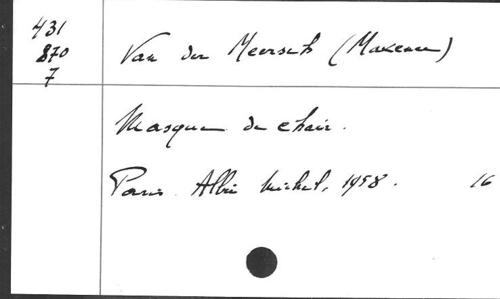 431
870
7
Van der Meersch (Maxence)
Masque de chair.
Paris Albin Michel, 1958. 16